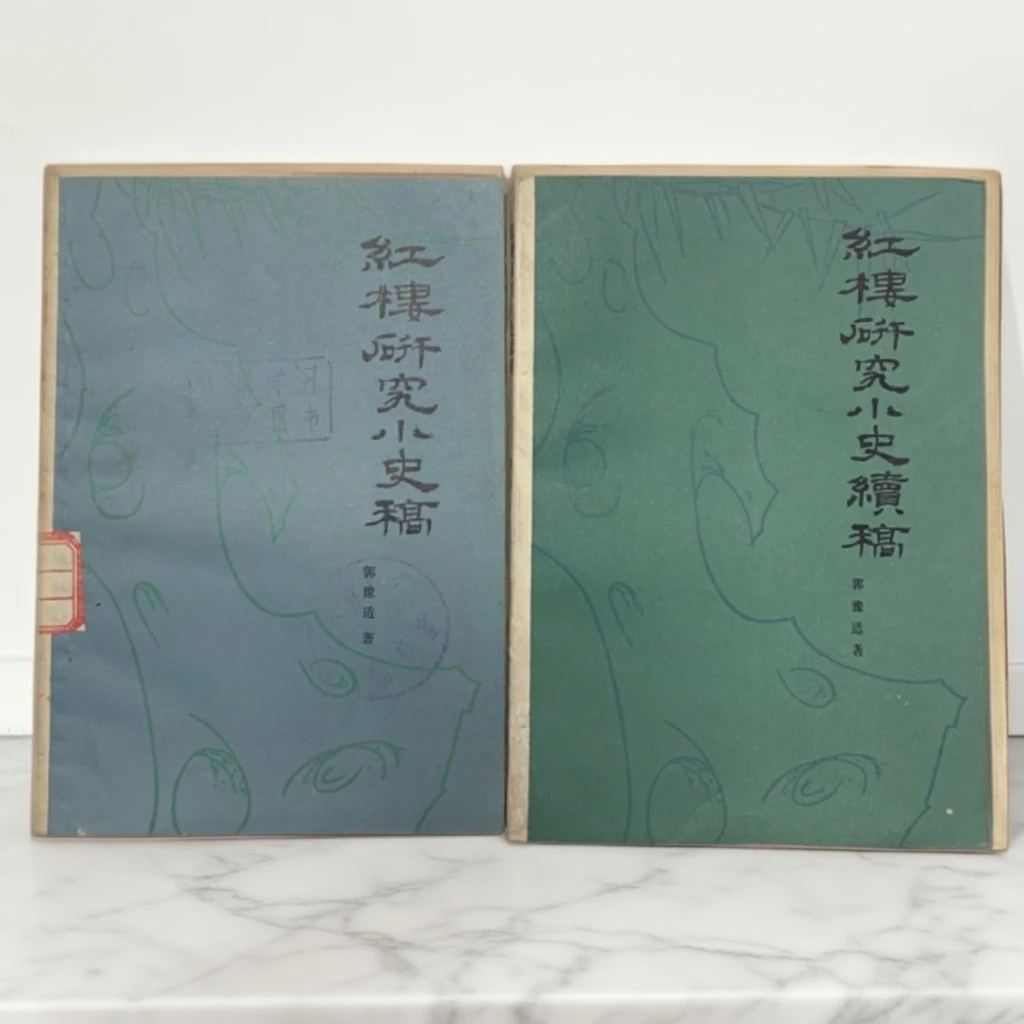 紅樓研究小史稿
郭豫适 著
紅樓研究小史續稿
郭豫适 著